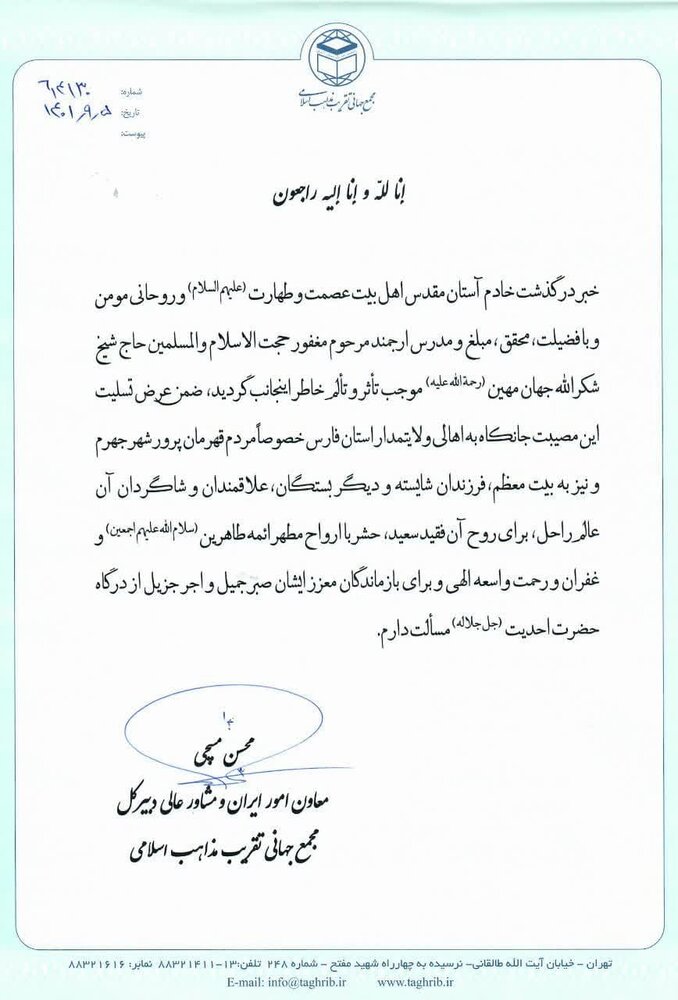 مجمع جهانی تقریب مذاهب اسلامی
شماره: ۶۱۴۱۳۰
تاریخ: ۱۴۰۱٫۹٫۵
پیوست:
إنا لله و إنا إلیه راجعون
خبر درگذشت خادم آستان مقدس اهل بیت عصمت و طهارت (علیهم السلام) و روحانی مومن
و بافضیلت، محقق، مبلغ و مدرس ارجمند مرحوم مغفور حجت الاسلام والمسلمین حاج شیخ
شکرالله جهان مهین (رحمة الله علیه) موجب تأثر و تألم خاطر اینجانب گردید، ضمن عرض تسلیت
این مصیبت جانکاه به اهالی ولایتمدار استان فارس خصوصاً مردم قهرمان پرور شهر جهرم
و نیز به بیت معظم، فرزندان شایسته و دیگر بستگان، علاقمندان و شاگردان آن
عالم راحل، برای روح آن فقید سعید، حشر با ارواح مطهر ائمه طاهرین (سلام الله علیهم اجمعین) و
غفران و رحمت واسعه الهی و برای بازماندگان معزز ایشان صبر جمیل و اجر جزیل از درگاه
حضرت احدیت (جل جلاله) مسألت دارم.
محسن مسچی
معاون امور ایران و مشاور عالی دبیرکل
مجمع جهانی تقریب مذاهب اسلامی
تهران - خیابان آیت الله طالقانی- نرسیده به چهارراه شهید مفتح - شماره ۲۴۸ تلفن:۱۳-۸۸۳۲۱۴۱۱ نمابر: ۸۸۳۲۱۶۱۶
E-mail: info@taghrib.ir www.taghrib.ir